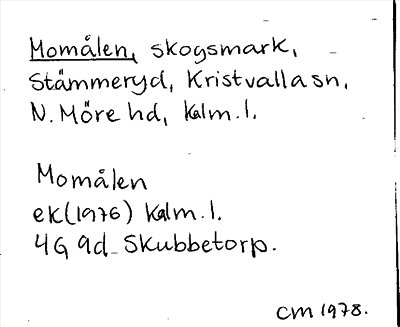 Momålen, skogsmark,
Stämmeryd, Kristvalla sn,
N. Möre hd, Kalm. l.
Momålen
ek (1976) Kalm. l.
4G 9d Skubbetorp.
CM 1978.